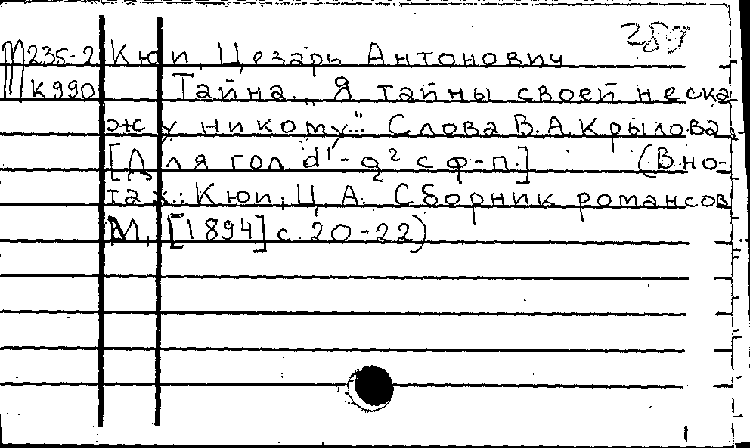 289
М235-2 Кюи, Цезарь Антонович
К990 Тайна. „Я тайны своей неска
жу никому". Слова В.А.Крылова
[Для гол. d¹-g² с ф-п.] (В но-
тах: Кюи, Ц. А. Сборник романсов
М., [1894] с. 20-22)